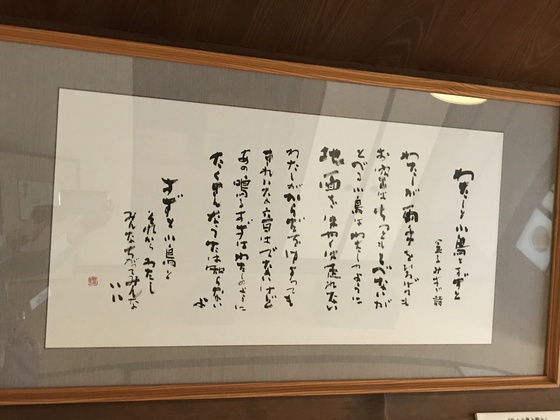 わたしと小鳥とすずと
金子みすゞ 詩
わたしが両手をひろげても
お空はちっともとべないが
とべる小鳥はわたしのように
地面をはやくは走れない
わたしがからだをゆすっても
きれいな音はでないけど
あの鳴るすずはわたしのように
たくさんなうたは知らない
よ
すずと小鳥と
それからわたし
みんなちがってみんな
いい